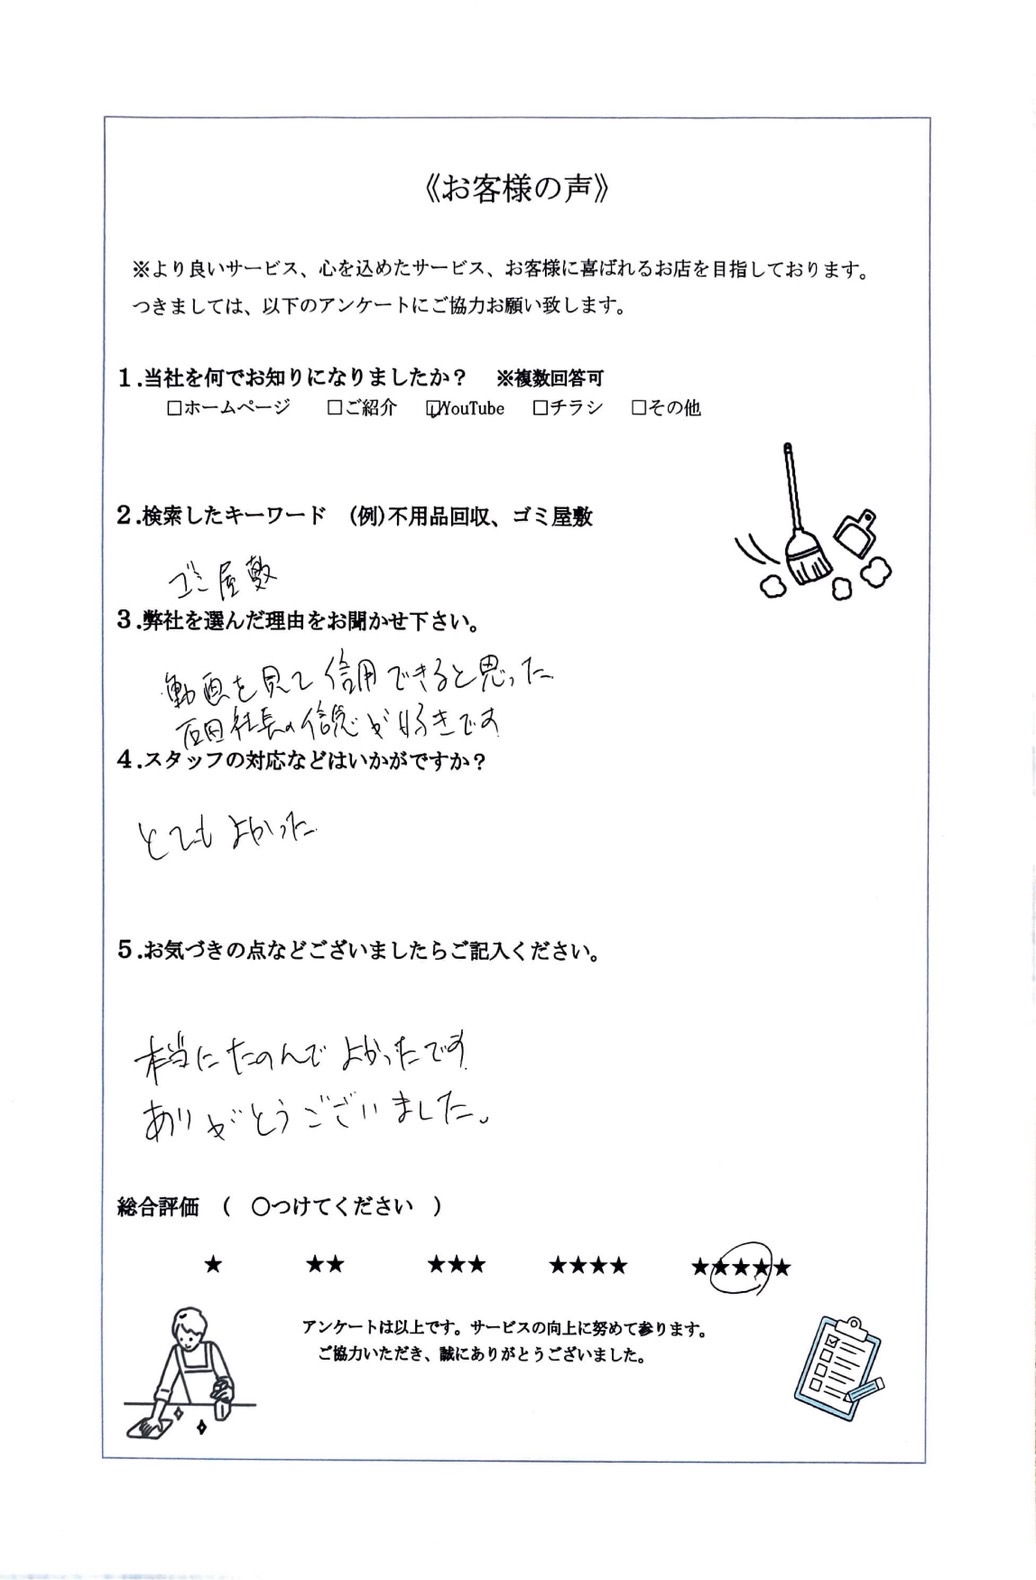 《お客様の声》
※より良いサービス、心を込めたサービス、お客様に喜ばれるお店を目指しております。
つきましては、以下のアンケートにご協力お願い致します。
1.当社を何でお知りになりましたか？ ※複数回答可
□ホームページ □ご紹介 ☑YouTube □チラシ □その他
2.検索したキーワード (例)不用品回収、ゴミ屋敷
ゴミ屋敷
3.弊社を選んだ理由をお聞かせ下さい。
動画を見て信用できると思った
石田社長の信念が好きです
4.スタッフの対応などはいかがですか？
とてもよかった
5.お気づきの点などございましたらご記入ください。
本当にたのんでよかったです
ありがとうございました。
総合評価 ( 〇つけてください )
★ ★★ ★★★ ★★★★ ★★★★★
アンケートは以上です。サービスの向上に努めて参ります。
ご協力いただき、誠にありがとうございました。